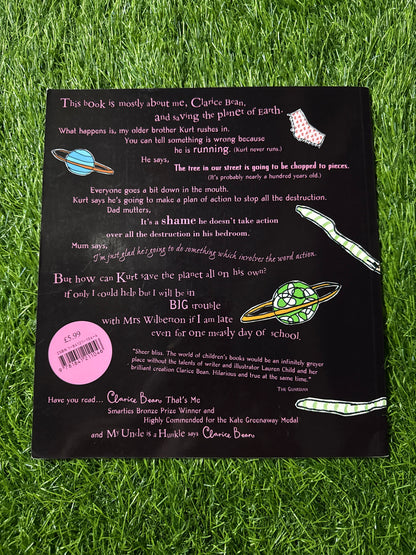 This book is mostly about me, Clarice Bean,
and saving the planet of Earth.
What happens is, my older brother Kurt rushes in.
You can tell something is wrong because
he is running. (Kurt never runs.)
He says,
The tree in our street is going to be chopped to pieces.
(It's probably nearly a hundred years old.)
Everyone goes a bit down in the mouth.
Kurt says he's going to make a plan of action to stop all the destruction.
Dad mutters,
It's a shame he doesn't take action
over all the destruction in his bedroom.
Mum says,
I'm just glad he's going to do something which involves the word action.
But how can Kurt save the planet all on his own?
if only I could help but I will be in
BIG trouble
with Mrs Wilberton if I am late
even for one measly day of school.
£5.99
"Sheer bliss. The world of children's books would be an infinitely greyer
place without the talents of writer and illustrator Lauren Child and her
brilliant creation Clarice Bean. Hilarious and true at the same time."
The Guardian
Have you read... Clarice Bean, That's Me
Smarties Bronze Prize Winner and
Highly Commended for the Kate Greenaway Medal
and My Uncle is a Hunkle says Clarice Bean